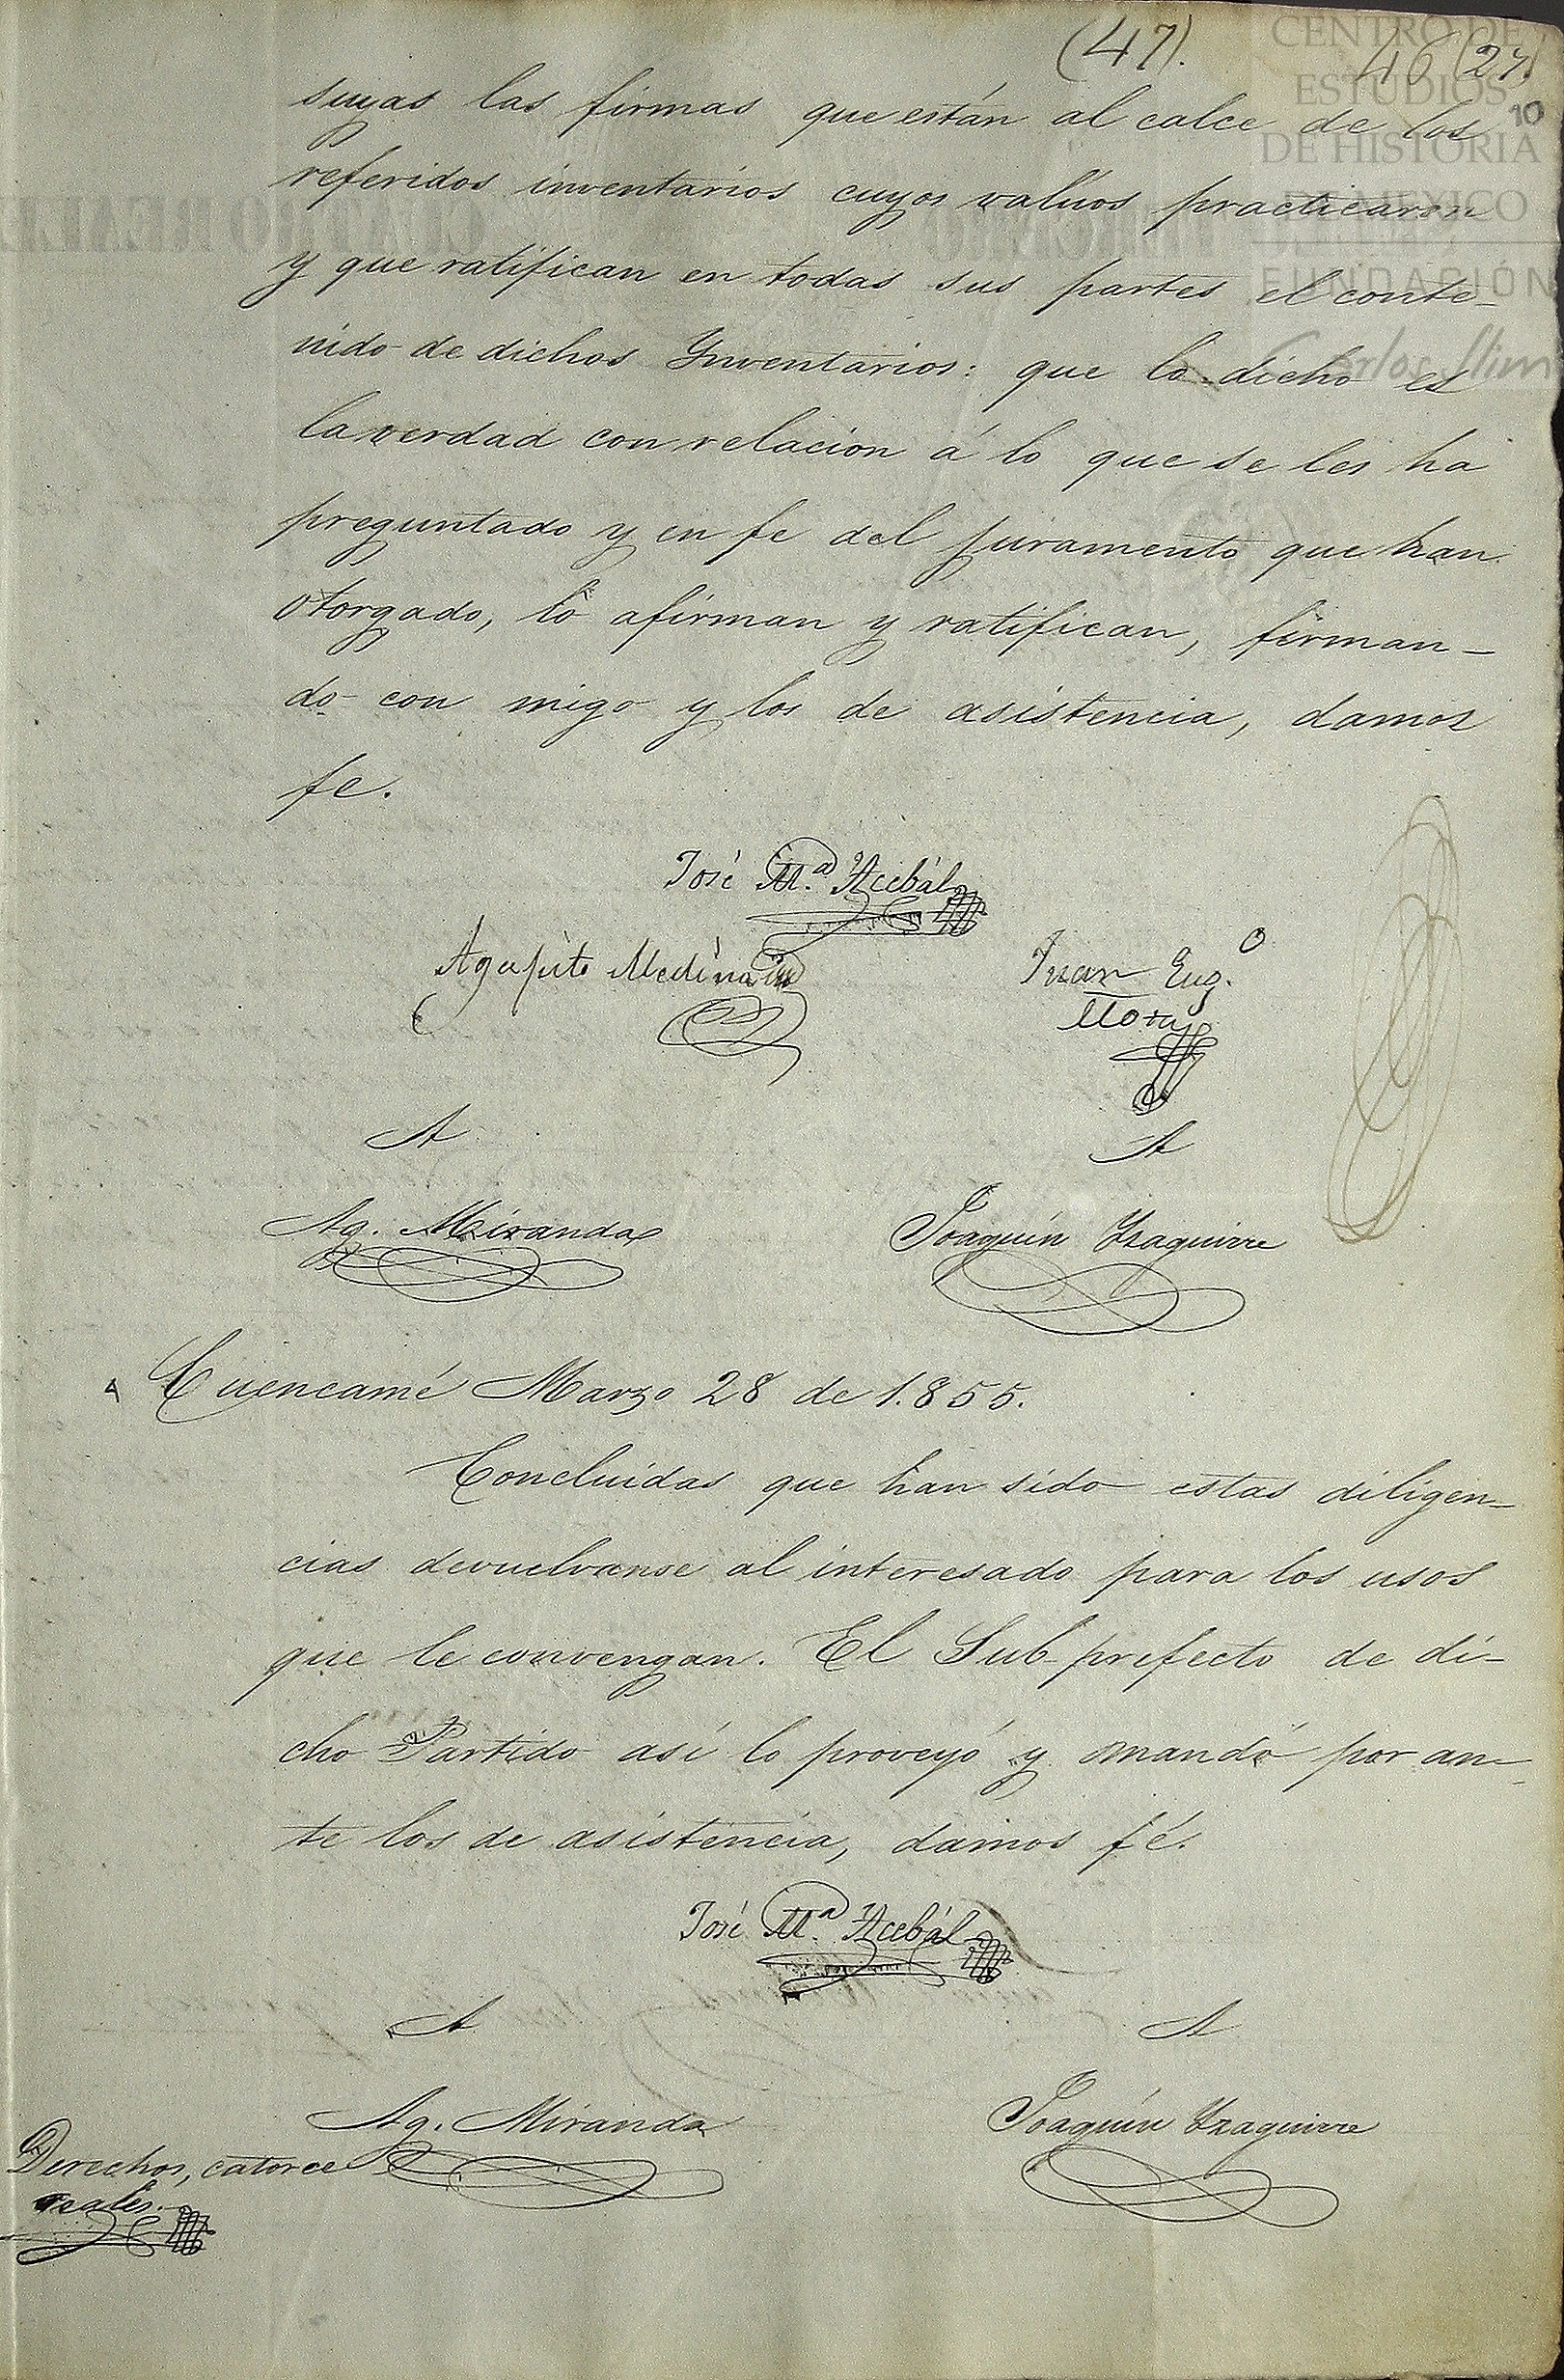 (47). 46 (27)
10
CENTRO DE
ESTUDIOS
DE HISTORIA
DE MEXICO
FUNDACIÓN
Carlos Slim
suyas las firmas que están al calce de los
referidos inventarios cuyos valúos practicaron
y que ratifican en todas sus partes el conte-
nido de dichos Ynventarios: que lo dicho es
la verdad con relacion á lo que se les ha
preguntado y en fe del juramento que han
otorgado, lo afirman y ratifican, firman-
do con migo y los de asistencia, damos
fe.
José Mª Acebál
Agapito Medina
Juan Eug.º
A
A
Ag. Miranda
Joaquín Yzaguirre
Cuencamé Marzo 28 de 1.855.
Concluidas que han sido estas diligen-
cias devuelvanse al interesado para los usos
que le convengan. El Sub-prefecto de di-
cho Partido así lo proveyó y mandó por an-
te los de asistencia, damos fé.
José Mª Acebál
A
A
Ag. Miranda
Joaquín Yzaguirre
Derechos, catorce
reales.